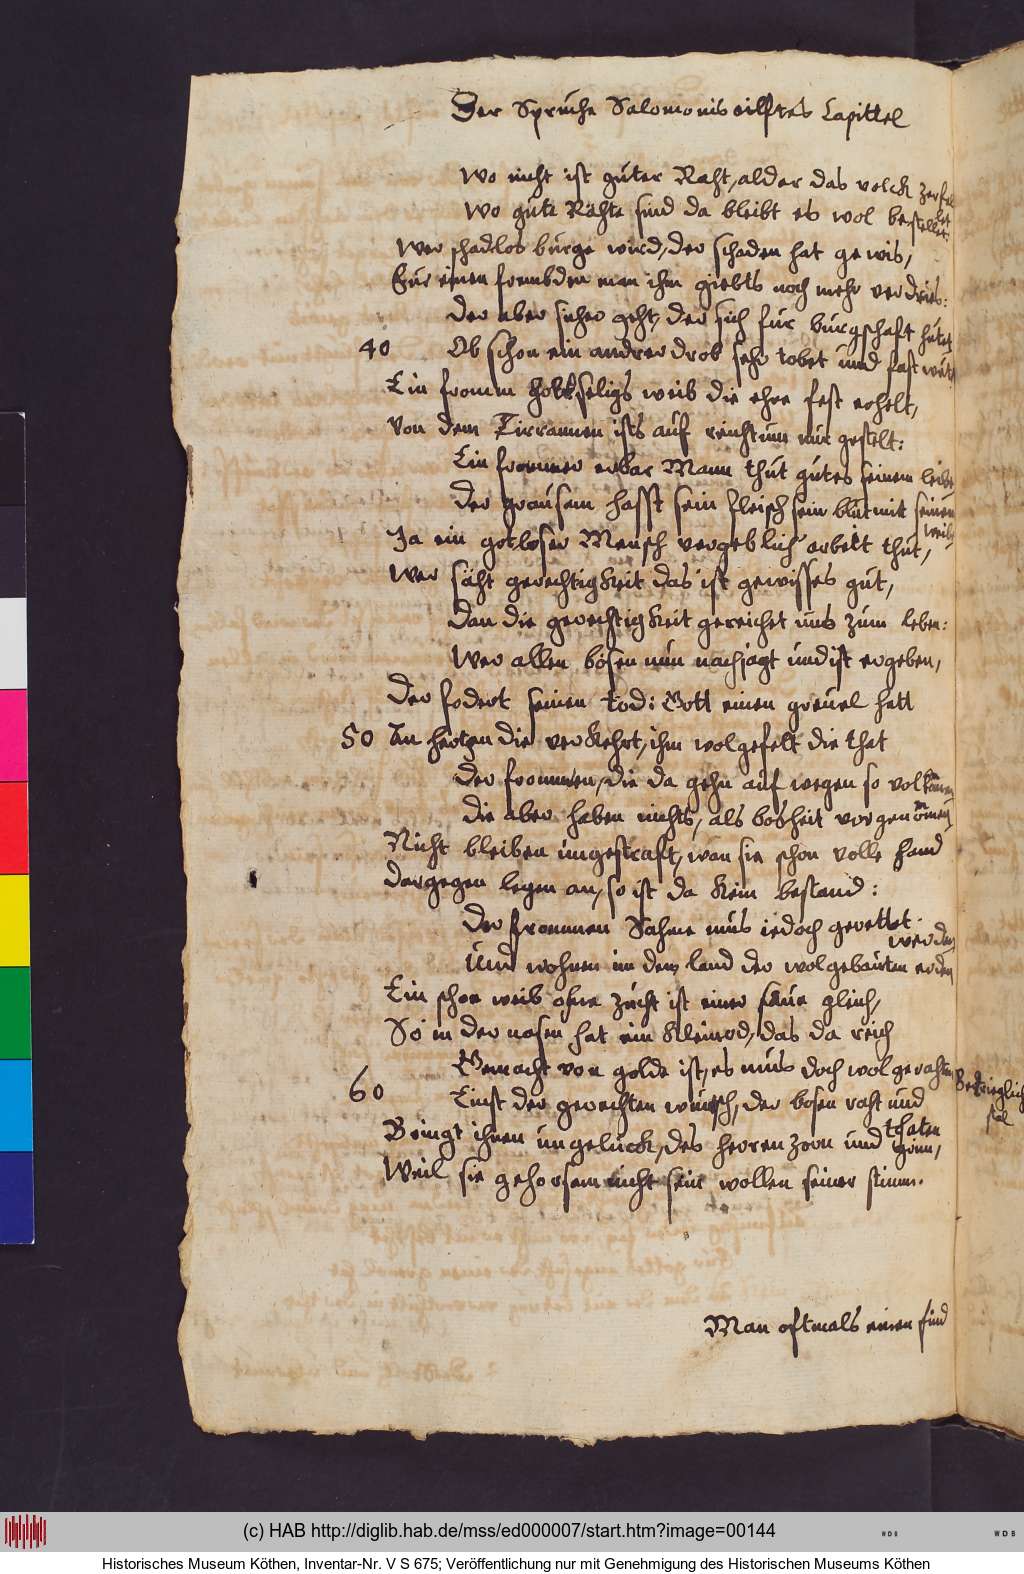 Der Spruche Salomonis eilftes Capittel
Wo nicht ist guter Raht, aldar das volck zerfel
let
Wo gute Rähte sind da bleibt es wol bestellet:
Wer schadlos burge wird, der schaden hat gewis,
Fur einen frembden man ihm giebts noch mehr verdries:
Der aber sicher geht, der sich fur burgschaft hutet
40 Ob schon ein andrer drob sehr tobet und fast wütet
Ein fromm holdseligs weib die ehre fest erhelt,
Von dem Tirrannen ists auf reichtum nur gestelt:
Ein frommer erbar Mann thut gutes seinem leibe
Der grausam hasst sein fleisch sein blut mit seinem
weibe
Ja ein gotloser Mensch vergeblich arbeit thut,
Wer säht gerechtigkeit das ist gewisses gut,
Dan die gerechtigkeit gereichet uns zum leben:
Wer allen bösen nun nachjagt und ist ergeben,
Der fodert seinen tod: Gott einen greuel hatt
50 An hertzen die verkehrt, ihm wolgefelt die that
Der frommen, die da gehn auf wegen so volkommen
Die aber haben nichts, als bosheit vorgenommen
Nicht bleiben ungestraft, wan sie schon volle hand
Dargegen legen an, so ist da kein bestand:
Der frommen Sahme mus iedoch gerettet
werden
Und wohnen in dem land der wolgebauten erden
Ein schon weib ohne zucht ist einer saue gleich,
So in der nasen hat ein kleinod, das da reich
Gemacht von golde ist, es mus doch wol gerahten
60 Einst der gerechten wunsch, der bosen raht und
thaten
Bringt ihnen ungelück, des herren zorn und grim,
Weil sie gehorsam nicht sein wollen seiner stimm.
Man oftmals einen find